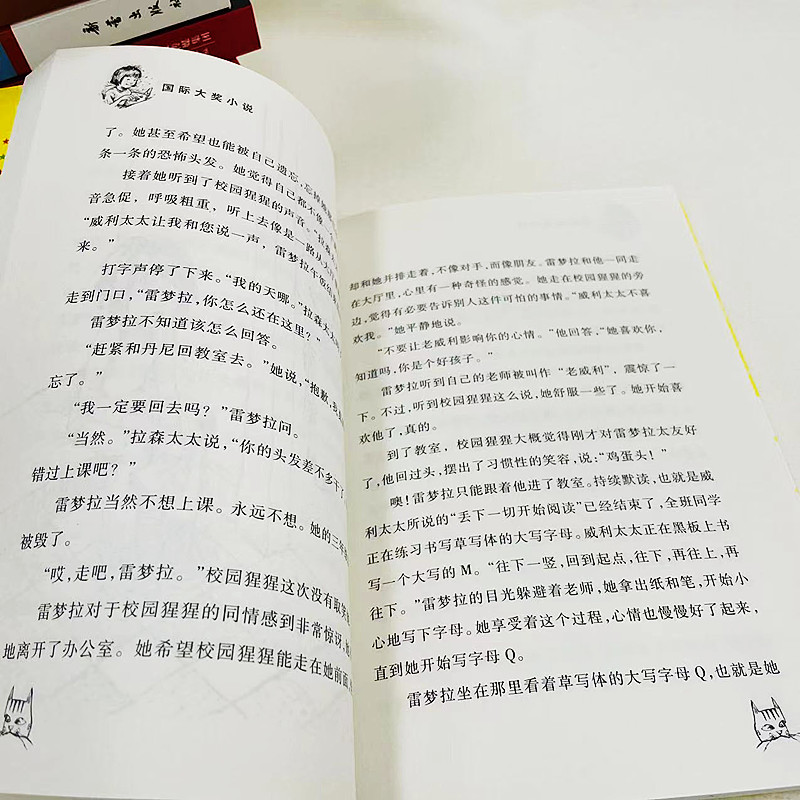 新蕾出版社
国际大奖小说
了。她甚至希望也能被自己遗忘，忘掉她
条一条的恐怖头发。她觉得自己都不像一
接着她听到了校园猩猩的声音。“拉森
音急促，呼吸粗重，听上去像是一路从大厅
“威利太太让我和您说一声，雷梦拉午饭
来。”
打字声停了下来。“我的天哪。”拉森太太
走到门口，“雷梦拉，你怎么还在这里？”
雷梦拉不知道该怎么回答。
“赶紧和丹尼回教室去。”她说，“抱歉，我
忘了。”
“我一定要回去吗？”雷梦拉问。
“当然。”拉森太太说，“你的头发差不多干了
错过上课吧？”
雷梦拉当然不想上课。永远不想。她的三年
被毁了。
“哎，走吧，雷梦拉。”校园猩猩这次没有取笑
雷梦拉对于校园猩猩的同情感到非常惊讶，
地离开了办公室。她希望校园猩猩能走在她前面，
却和她并排走着，不像对手，而像朋友。雷梦拉和他一同走
在大厅里，心里有一种奇怪的感觉。她走在校园猩猩的旁
边，觉得有必要告诉别人这件可怕的事情。“威利太太不喜
欢我。”她平静地说。
“不要让老威利影响你的心情。”他回答，“她喜欢你，
知道吗，你是个好孩子。”
雷梦拉听到自己的老师被叫作“老威利”，震惊了一
下。不过，听到校园猩猩这么说，她舒服一些了。她开始喜
欢他了，真的。
到了教室，校园猩猩大概觉得刚才对雷梦拉太友好
了，他回过头，摆出了习惯性的笑容，说：“鸡蛋头！”
噢！雷梦拉只能跟着他进了教室。持续默读，也就是威
利太太所说的“丢下一切开始阅读”已经结束了，全班同学
正在练习书写草写体的大写字母。威利太太正在黑板上书
写一个大写的 M。“往下一竖，回到起点，往下，再往上，再
往下。”雷梦拉的目光躲避着老师，她拿出纸和笔，开始小
心地写下字母。她享受着这个过程，心情也慢慢好了起来，
直到她开始写字母 Q。
雷梦拉坐在那里看着草写体的大写字母 Q，也就是她